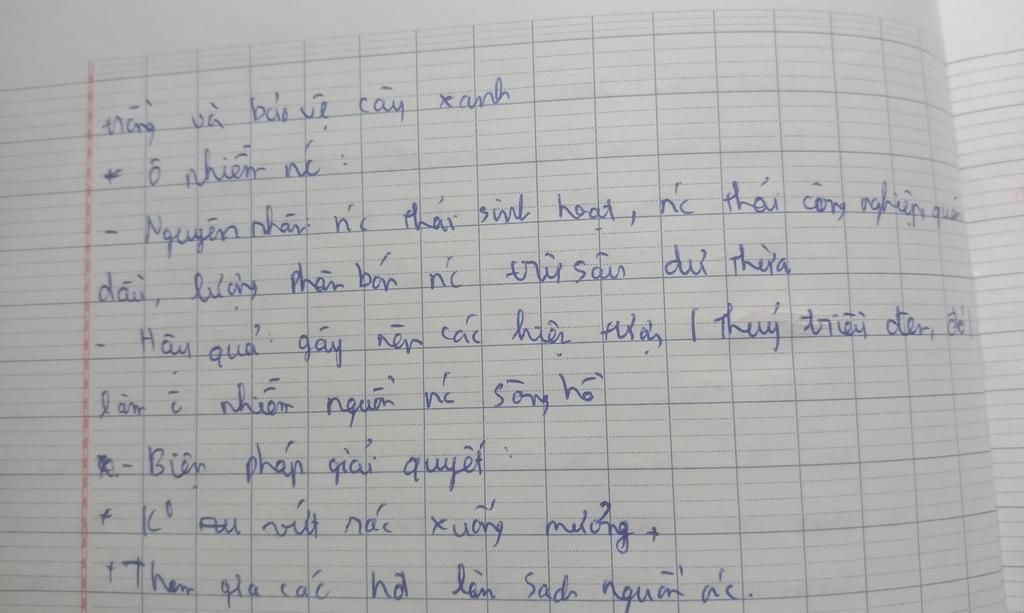 trồng và bảo vệ cây xanh
* Ô nhiễm nc :
- Nguyên nhân: nc thải sinh hoạt, nc thải công nghiệp,
dầu, lượng phân bón nc trừ sâu dư thừa
- Hậu quả: gây nên các hiện tượng ( thuỷ triều đen, đỏ
làm ô nhiễm nguồn nc sông hồ
- Biện pháp giải quyết :
+ K° vứt rác xuống mương,
+ Tham gia các hđ làm sạch nguồn nc.